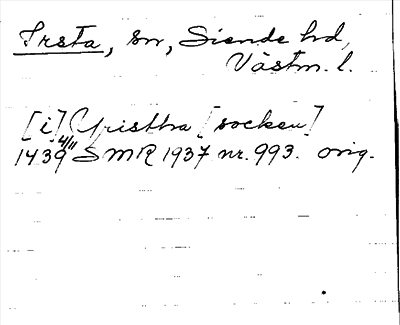 Irsta, sn, Siende hd,
Västm. l.
[i] Yristha [socken]
1439 4/11 SMR 1937 nr. 993. orig.